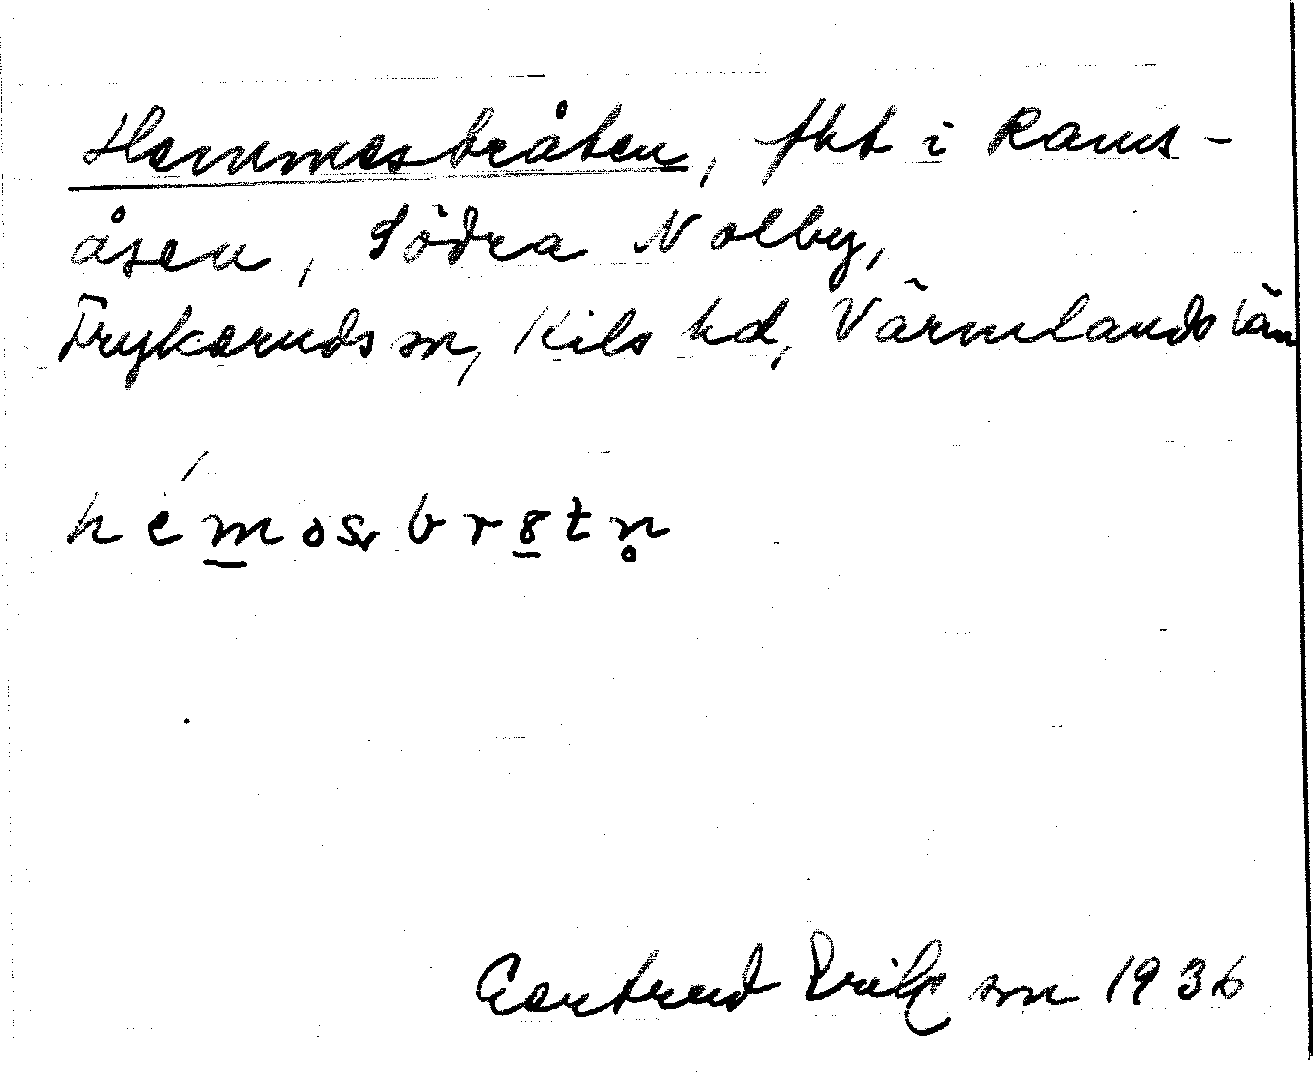 Hemmesbråten, fht i Rams-
åsen, Södra Nolby,
Frykeruds sn, Kils hd, Värmlands län
hémosbr8tn̥
Gertrud Erikson 1936